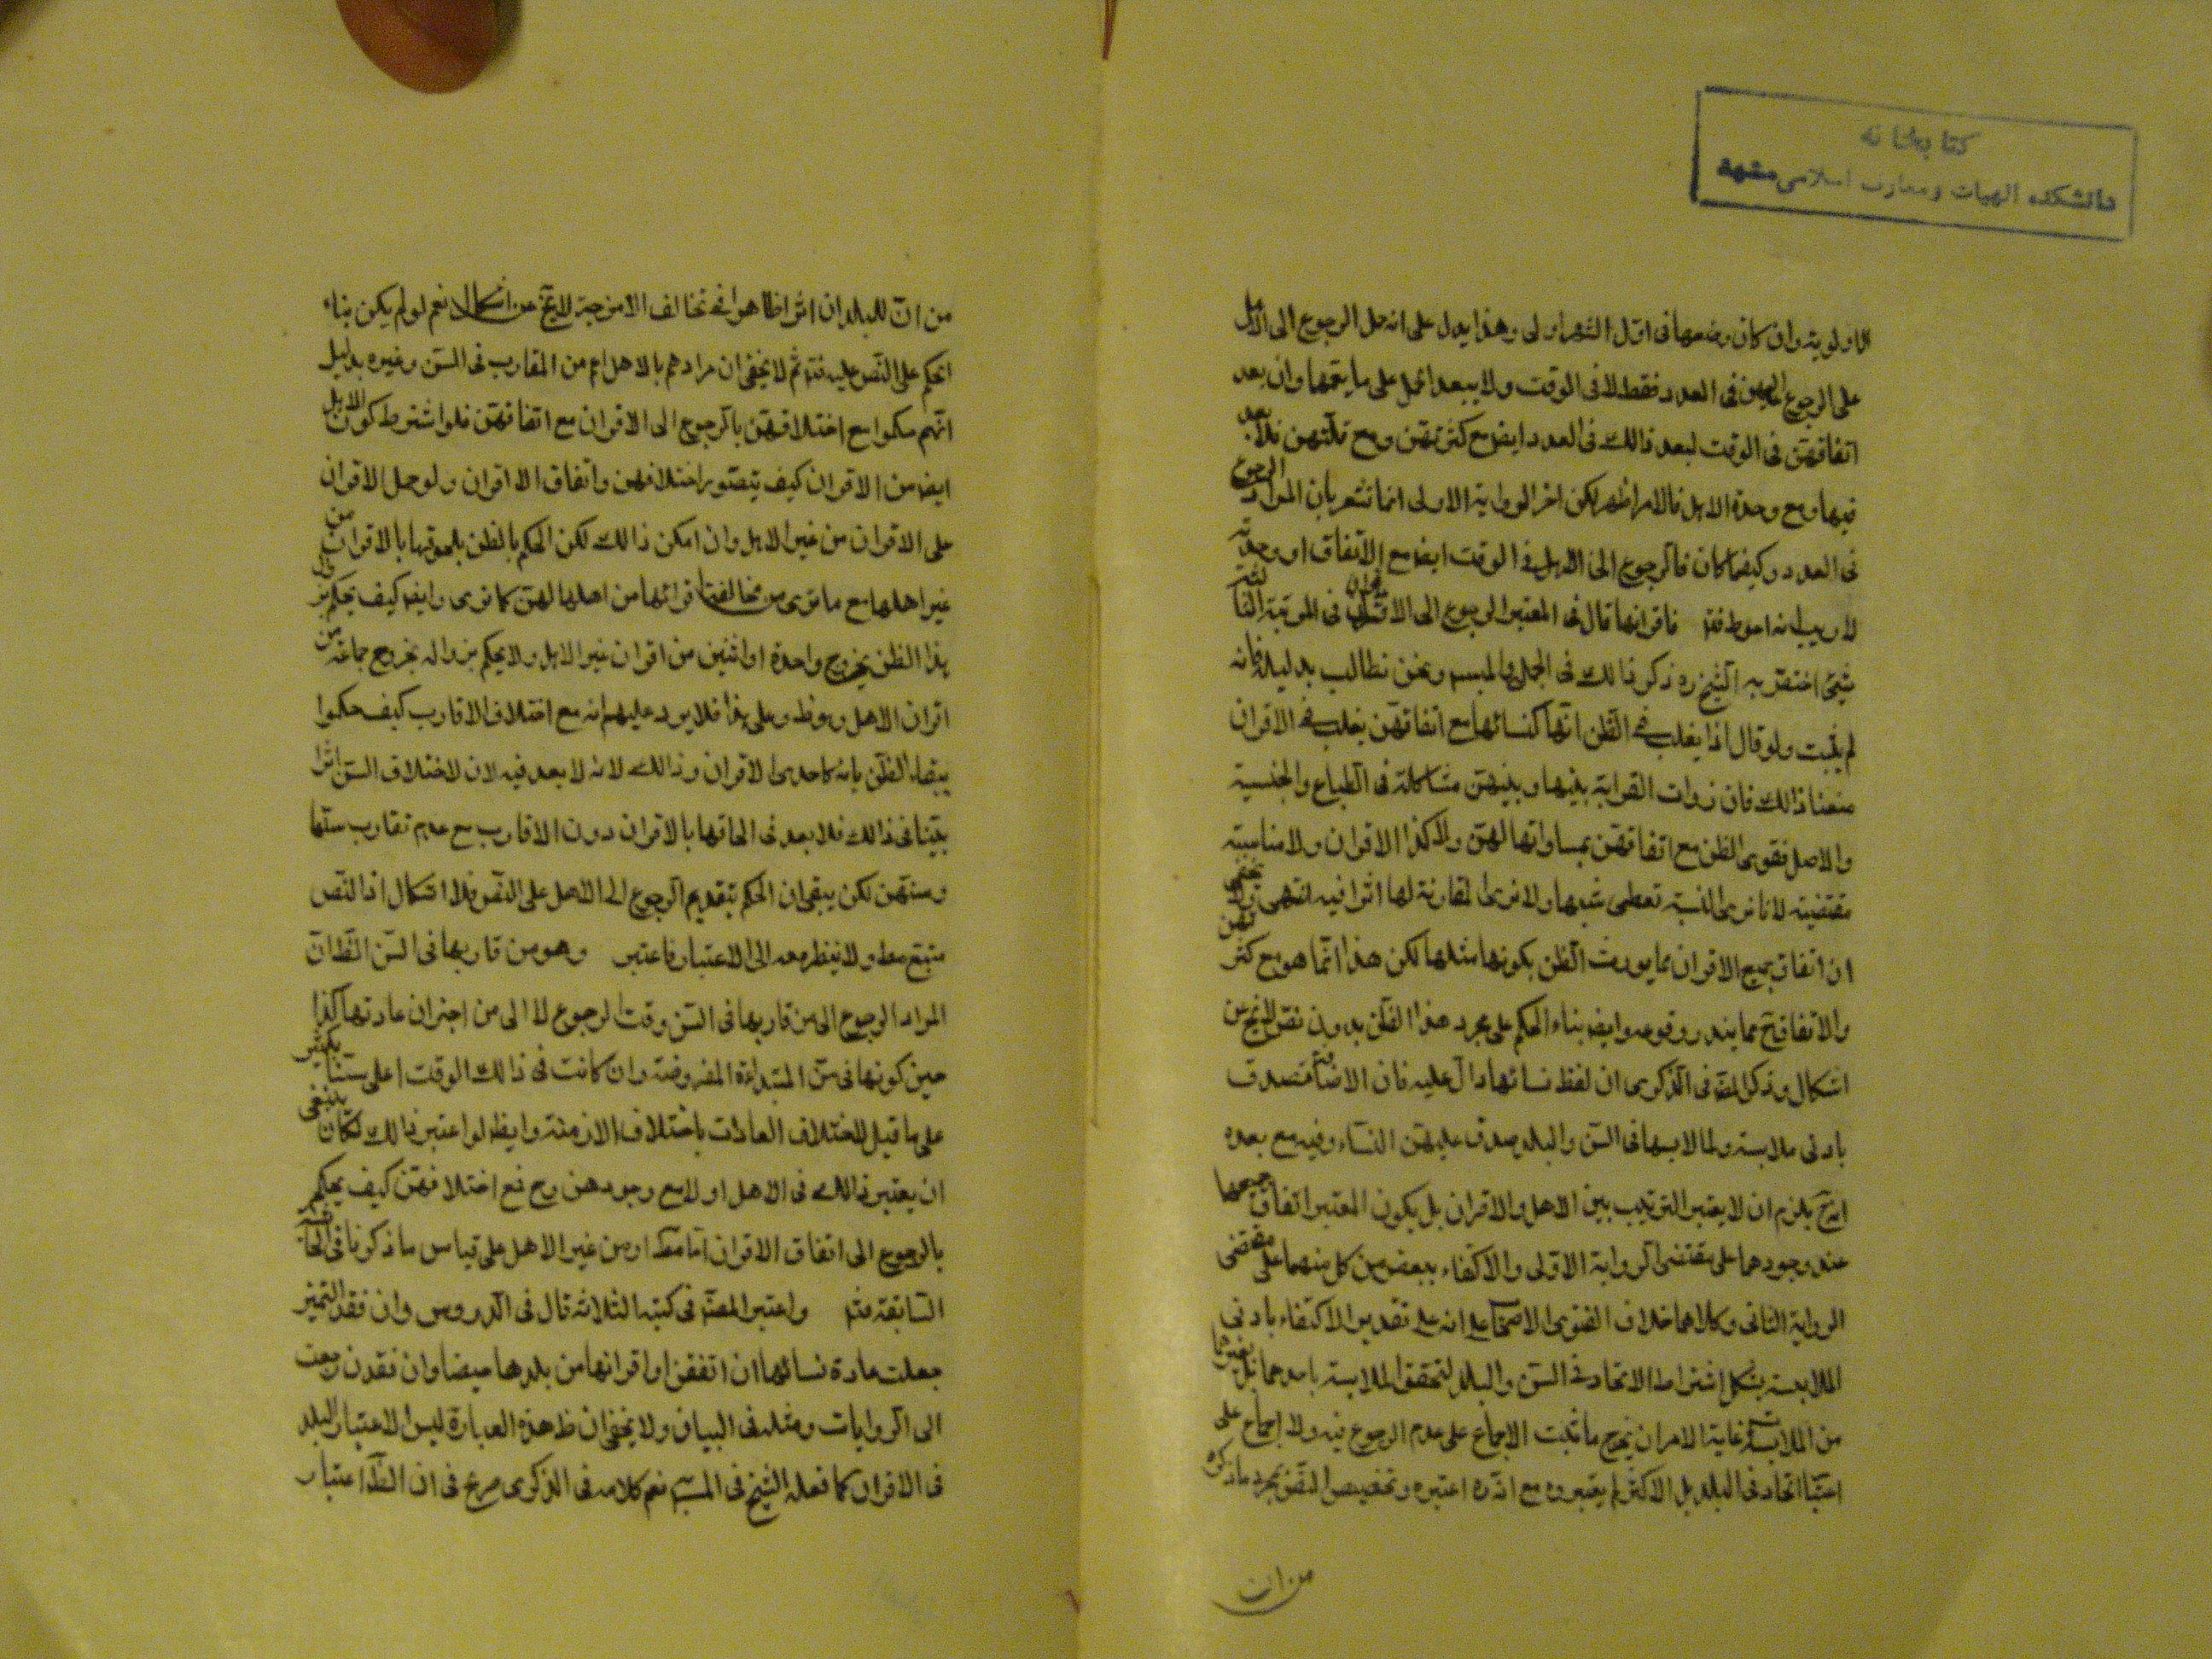 كتابخانه
دانشكده الهيات ومعارف اسلامى مشهد
الاولوية وان كان وضعها فى اول الشهر اولى وهذا يدل على انه حمل الرجوع الى الاهل
على الرجوع اليهن فى العدد فقط لا فى الوقت ولا يبعد الحمل على ما يعمها وان بعد
اتفاقهن فى الوقت لبعد ذالك فى العدد ايض مع كثرتهن ومع قلتهن فلا بعد
فيها ومع وحدة الاهل فالامر اظهر لكن اخر الرواية الاولى انما تشعر بان المراد الرجوع
فى العدد وكيفما كان فالرجوع الى الاهل فى الوقت ايض مع الاتفاق او وحدته
لا ريب انه احوط فتد فاقرانها قال فى المعتبر الرجوع الى الاقران فى المرتبة الثا
شئ اختص به الشيخ ره ذكر ذالك فى الجمل والمبسو ونحن نطالب بدليله فانه
لم يثبت ولو قال اذا يغلب فى الظن انها كنسائها مع اتفاقهن يغلب فى الاقران
منعنا ذالك فان ذوات القرابة بينها وبينهن مشاكلة فى الطباع والجنسية
والاصل فقوى الظن مع اتفاقهن بمساواتها لهن ولا كذا الاقران ولا مناسبة
مقتضية لانا نرى النسبة تعطى شبها ولا نرى المقارنة لها اثرا فيه انتهى ولا يخفى
ان اتفاق جميع الاقران مما يورث الظن بكونها مثلها لكن هذا انما هو مع كثرتهن
والاتفاق ح مما يندر وقوعه وايض بناء الحكم على مجرد هذا الظن بدون نص لا يخ عن
اشكال وذكر المص فى الذكرى ان لفظ نسائها دال عليه فان الاضافة تصدق
بادنى ملابسة ولما لابسها فى السن والبلد صدق عليهن النساء وفيه مع بعده
انه ح يلزم ان لا يعتبر الترتيب بين الاهل والاقران بل يكون المعتبر اتفاق جميعها
عند وجودهما على مقتضى الرواية الاولى والاكتفاء ببعض من كل منهما على مقتضى
الرواية الثانى وكلاهما خلاف الفتوى الاصحاب على انه على تقدير الاكتفاء بادنى
الملابسة يشكل اشتراط الاتحاد فى السن والبلد لتحقق الملابسة باحدهما بل بغيرهما
من الملابسة غاية الامر ان يخرج ما ثبت الاجماع على عدم الرجوع فيه ولا اجماع على
اعتبا اتحاد فى البلد بل الاكثر لم يعتبروه مع انه ره اعتبره وتخصيص النص بمجرد ما ذكره
من ان
من ان للبلدان اثرا ظاهرا فى تخالف الامزجة لا يخ عن اشكال نعم لو لم يكن بناء
الحكم على النص عليه فتد ثم لا يخفى ان مرادهم بالاهل اعم من المقارب فى السن وغيره بدليل
انهم حكموا مع اختلافهن بالرجوع الى الاقران مع اتفاقهن فلو اشترط كون الاهل
ايض من الاقران كيف يتصور اختلافهن واتفاق الاقران ولو حمل الاقران
على الاقران من غير الاهل وان امكن ذالك لكن الحكم بالظن بلحوقها بالاقران من
غير اهلها مع ما نرى من مخالفتها اقرانها من اهلها لهن كما نرى وايض كيف يحكم
بهذا الظن بخروج واحدة او اثنين من اقران غير الاهل ولا يحكم بزواله بخروج جماعة من
اقران الاهل وعلى هذا فلا يرد عليهم انه مع اختلاف الاقارب كيف حكموا
ببقاء الظن بانه كاحدى الاقران وذالك لانه لا بعد فيه لان لاختلاف السن اثرا
بينا فى ذالك فلا بعد فى الحاقها بالاقران دون الاقارب مع عدم تقارب سنها
وسنهن لكن يبقى ان الحكم بتقديم الرجوع الى الاهل على النص فلا اشكال اذ النص
متبع مط ولا ينظر معه الى الاعتبار فاعتبر وهو من قاربها فى السن الظ ان
المراد الرجوع الى من قاربها فى السن وقت الرجوع لا الى من اخبرن عادتها كذا
حين كونها فى سن المبتداءة المفروضة وان كانت فى ذالك الوقت اعلى سنا بكثير
على ما قيل لاختلاف العادات باختلاف الازمنة وايض لو اعتبر ذالك لكان ينبغى
ان يعتبر ذالك فى الاهل اولا مع وجودهن وح فمع اختلافهن كيف يحكم
بالرجوع الى اتفاق الاقران اما مط او من غير الاهل على قياس ما ذكرنا فى الحا
السابقة فتد واعتبر المص فى كتبه الثلاثة قال فى الدروس وان فقد التميز
جعلت عادة نسائها ان اتفقن او اقرانها من بلدها حيضا وان فقدن رجعت
الى الروايات ومثله فى البيان ولا يخفى ان ظ هذه العبارة ليس الا اعتبار البلد
فى الاقران كما فعله الشيخ فى المبسو نعم كلامه فى الذكرى صريح فى ان الظ اعتبار